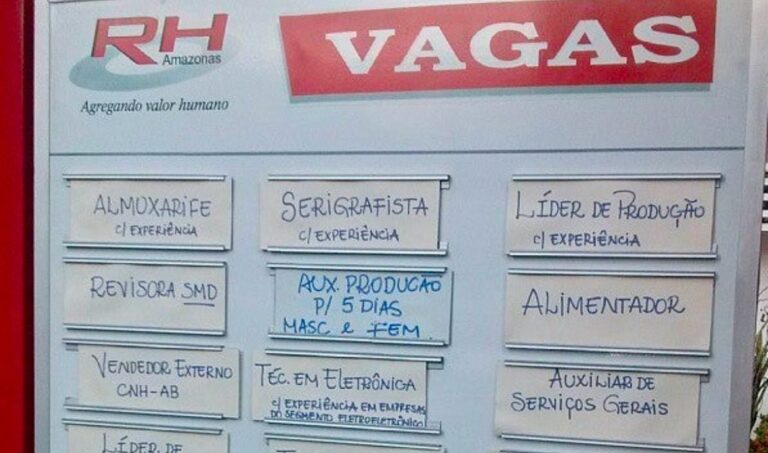 RH
Amazonas
Agregando valor humano
VAGAS
ALMOXARIFE
c/ EXPERIÊNCIA
SERIGRAFISTA
c/ EXPERIÊNCIA
LÍDER DE PRODUÇÃO
c/ EXPERIÊNCIA
REVISORA SMD
AUX. PRODUÇÃO
P/ 5 DIAS
MASC e FEM.
ALIMENTADOR
VENDEDOR EXTERNO
CNH-AB
TÉC. EM ELETRÔNICA
c/ EXPERIÊNCIA EM EMPRESAS
DO SEGMENTO ELETROELETRÔNICO
AUXILIAR DE
SERVIÇOS GERAIS
LÍDER DE